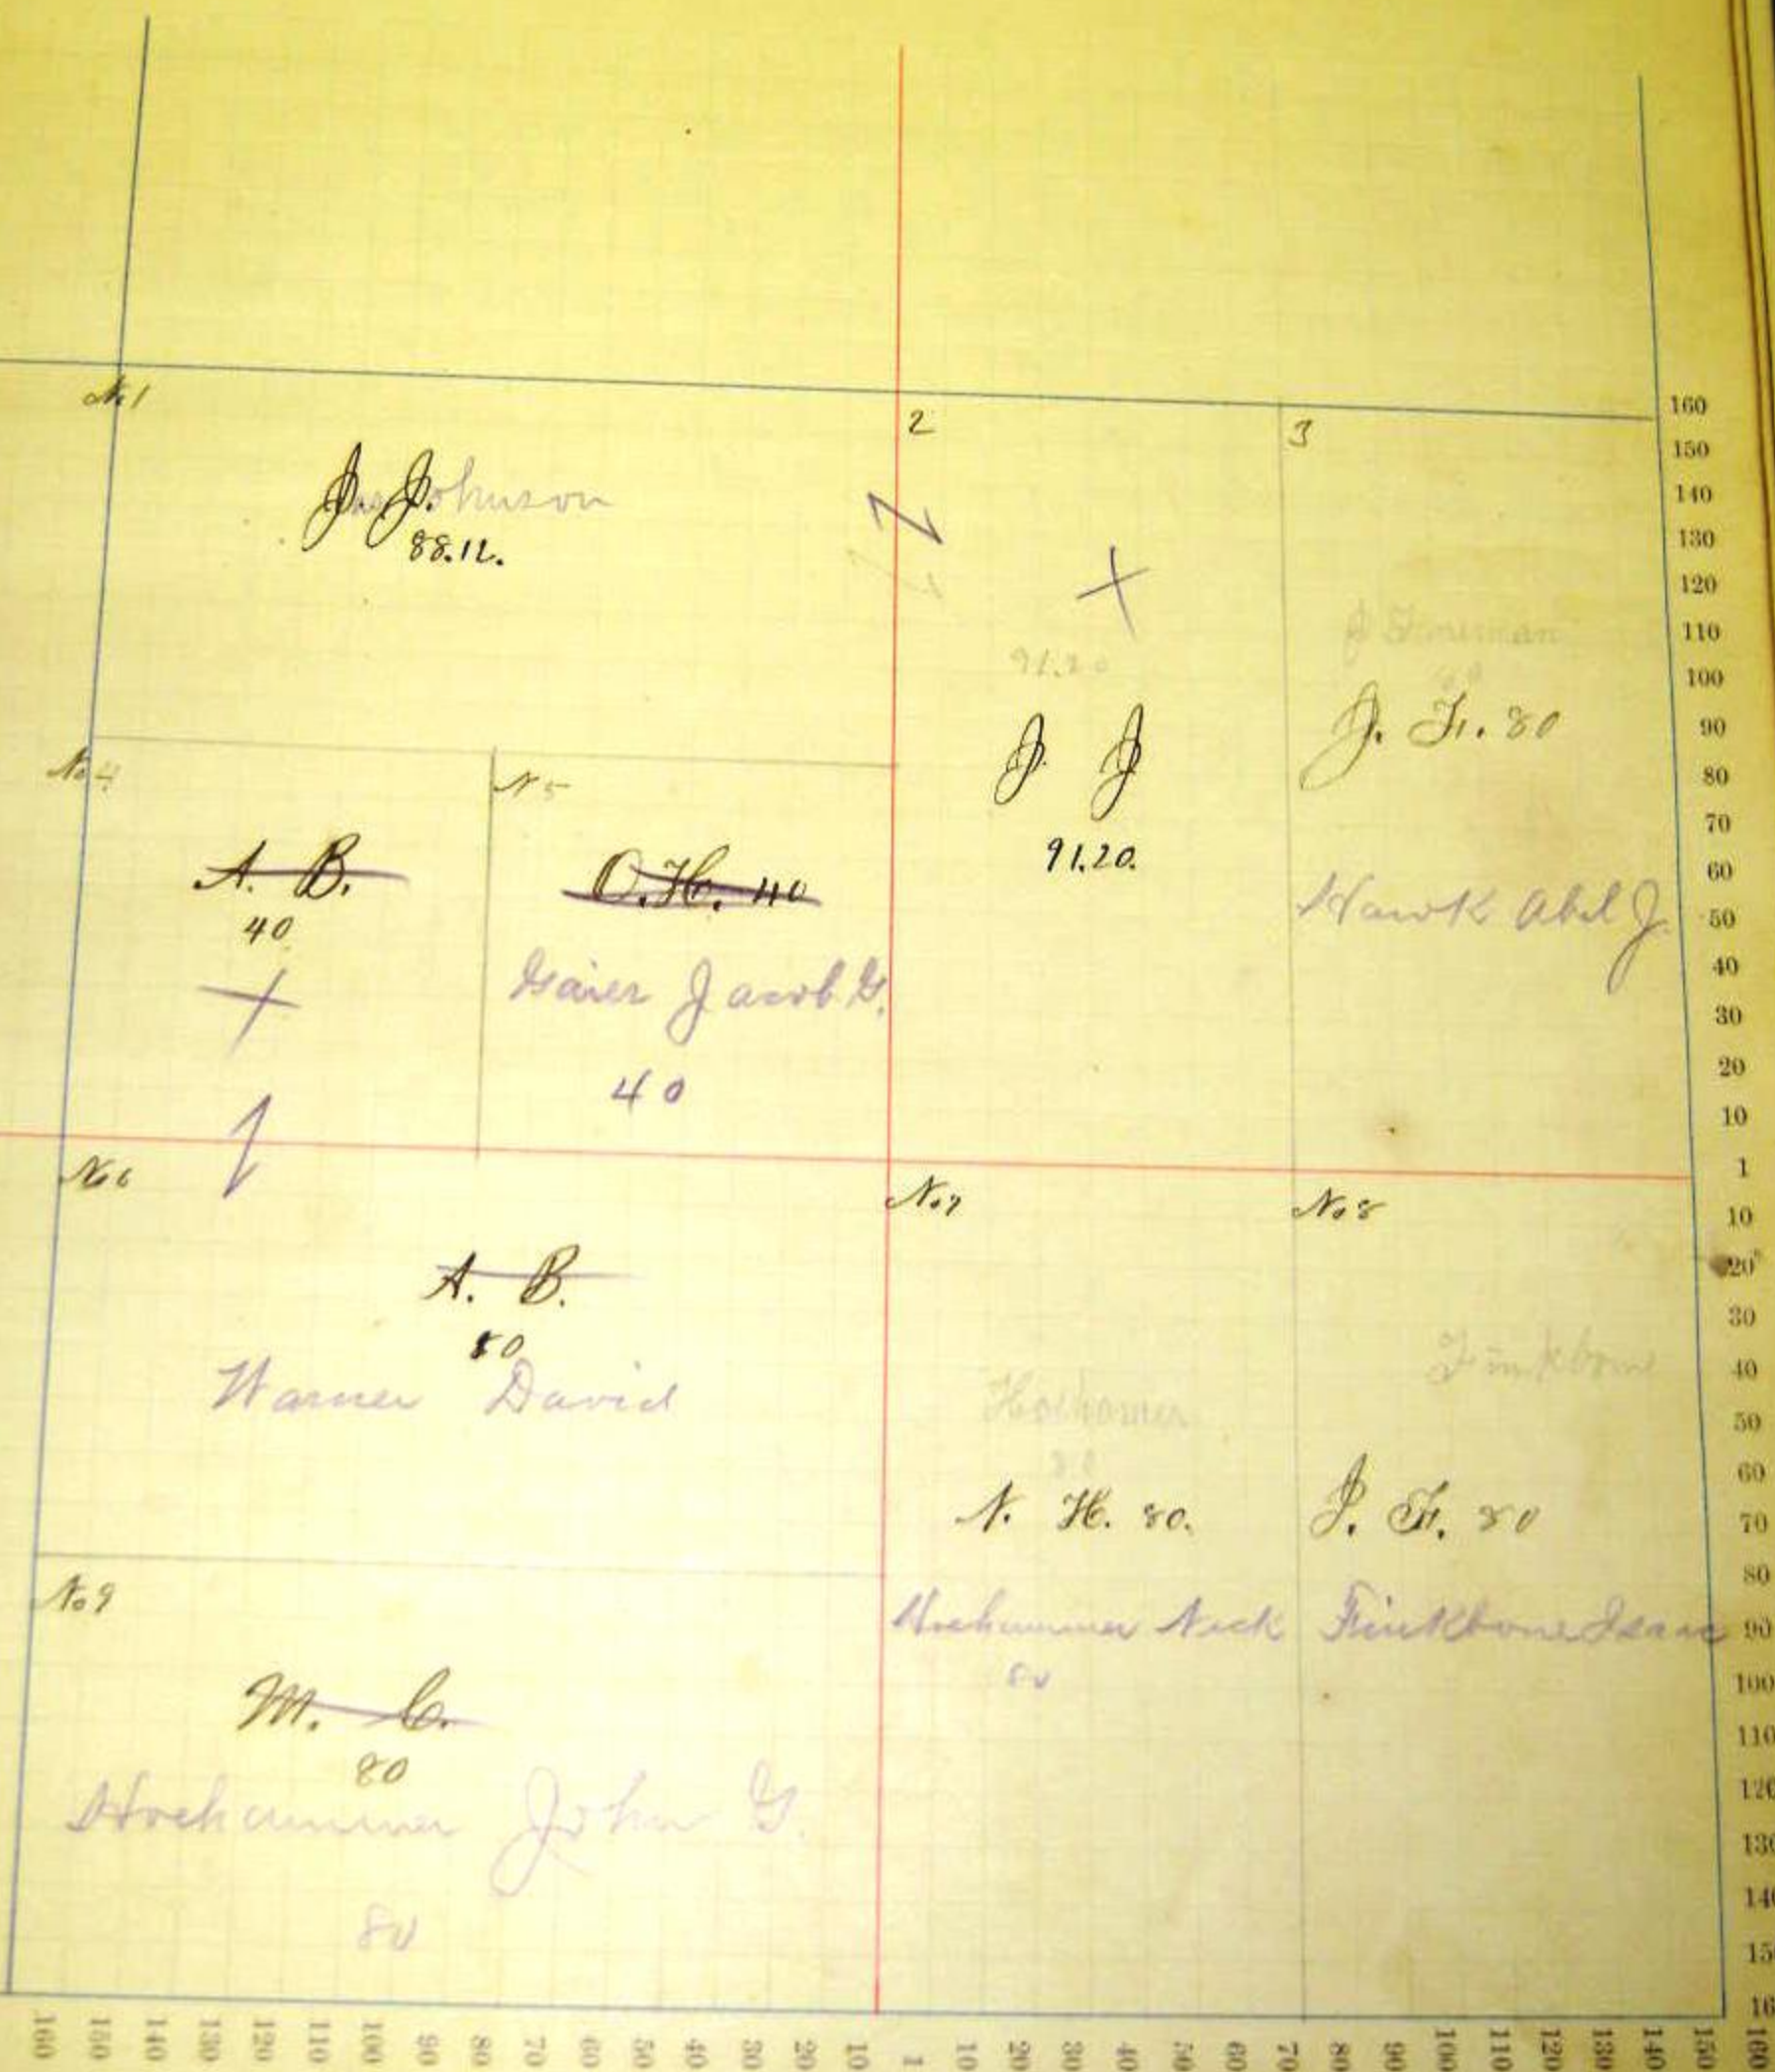 No 1
J. J.
Johnson
88.12.
2
91.20
J J
91.20.
3
J
J. F. 80
Hawk Abel J.
No 4
A. B.
40
N 5
O. H. 40
Gaier Jacob G.
40
No 6
A. B.
80
Warner David
No 7
80
N. H. 80.
Hochammer Nick
80
No 8
Finkbone
I. F. 80
Finkbone Isaac
No 9
M. C.
80
Hochammer John G.
80
160
150
140
130
120
110
100
90
80
70
60
50
40
30
20
10
1
10
20
30
40
50
60
70
80
90
100
110
120
130
140
15
16
160 150 140 130 120 110 100 90 80 70 60 50 40 30 20 10 1 10 20 30 40 50 60 70 80 90 100 110 120 130 140 150 160